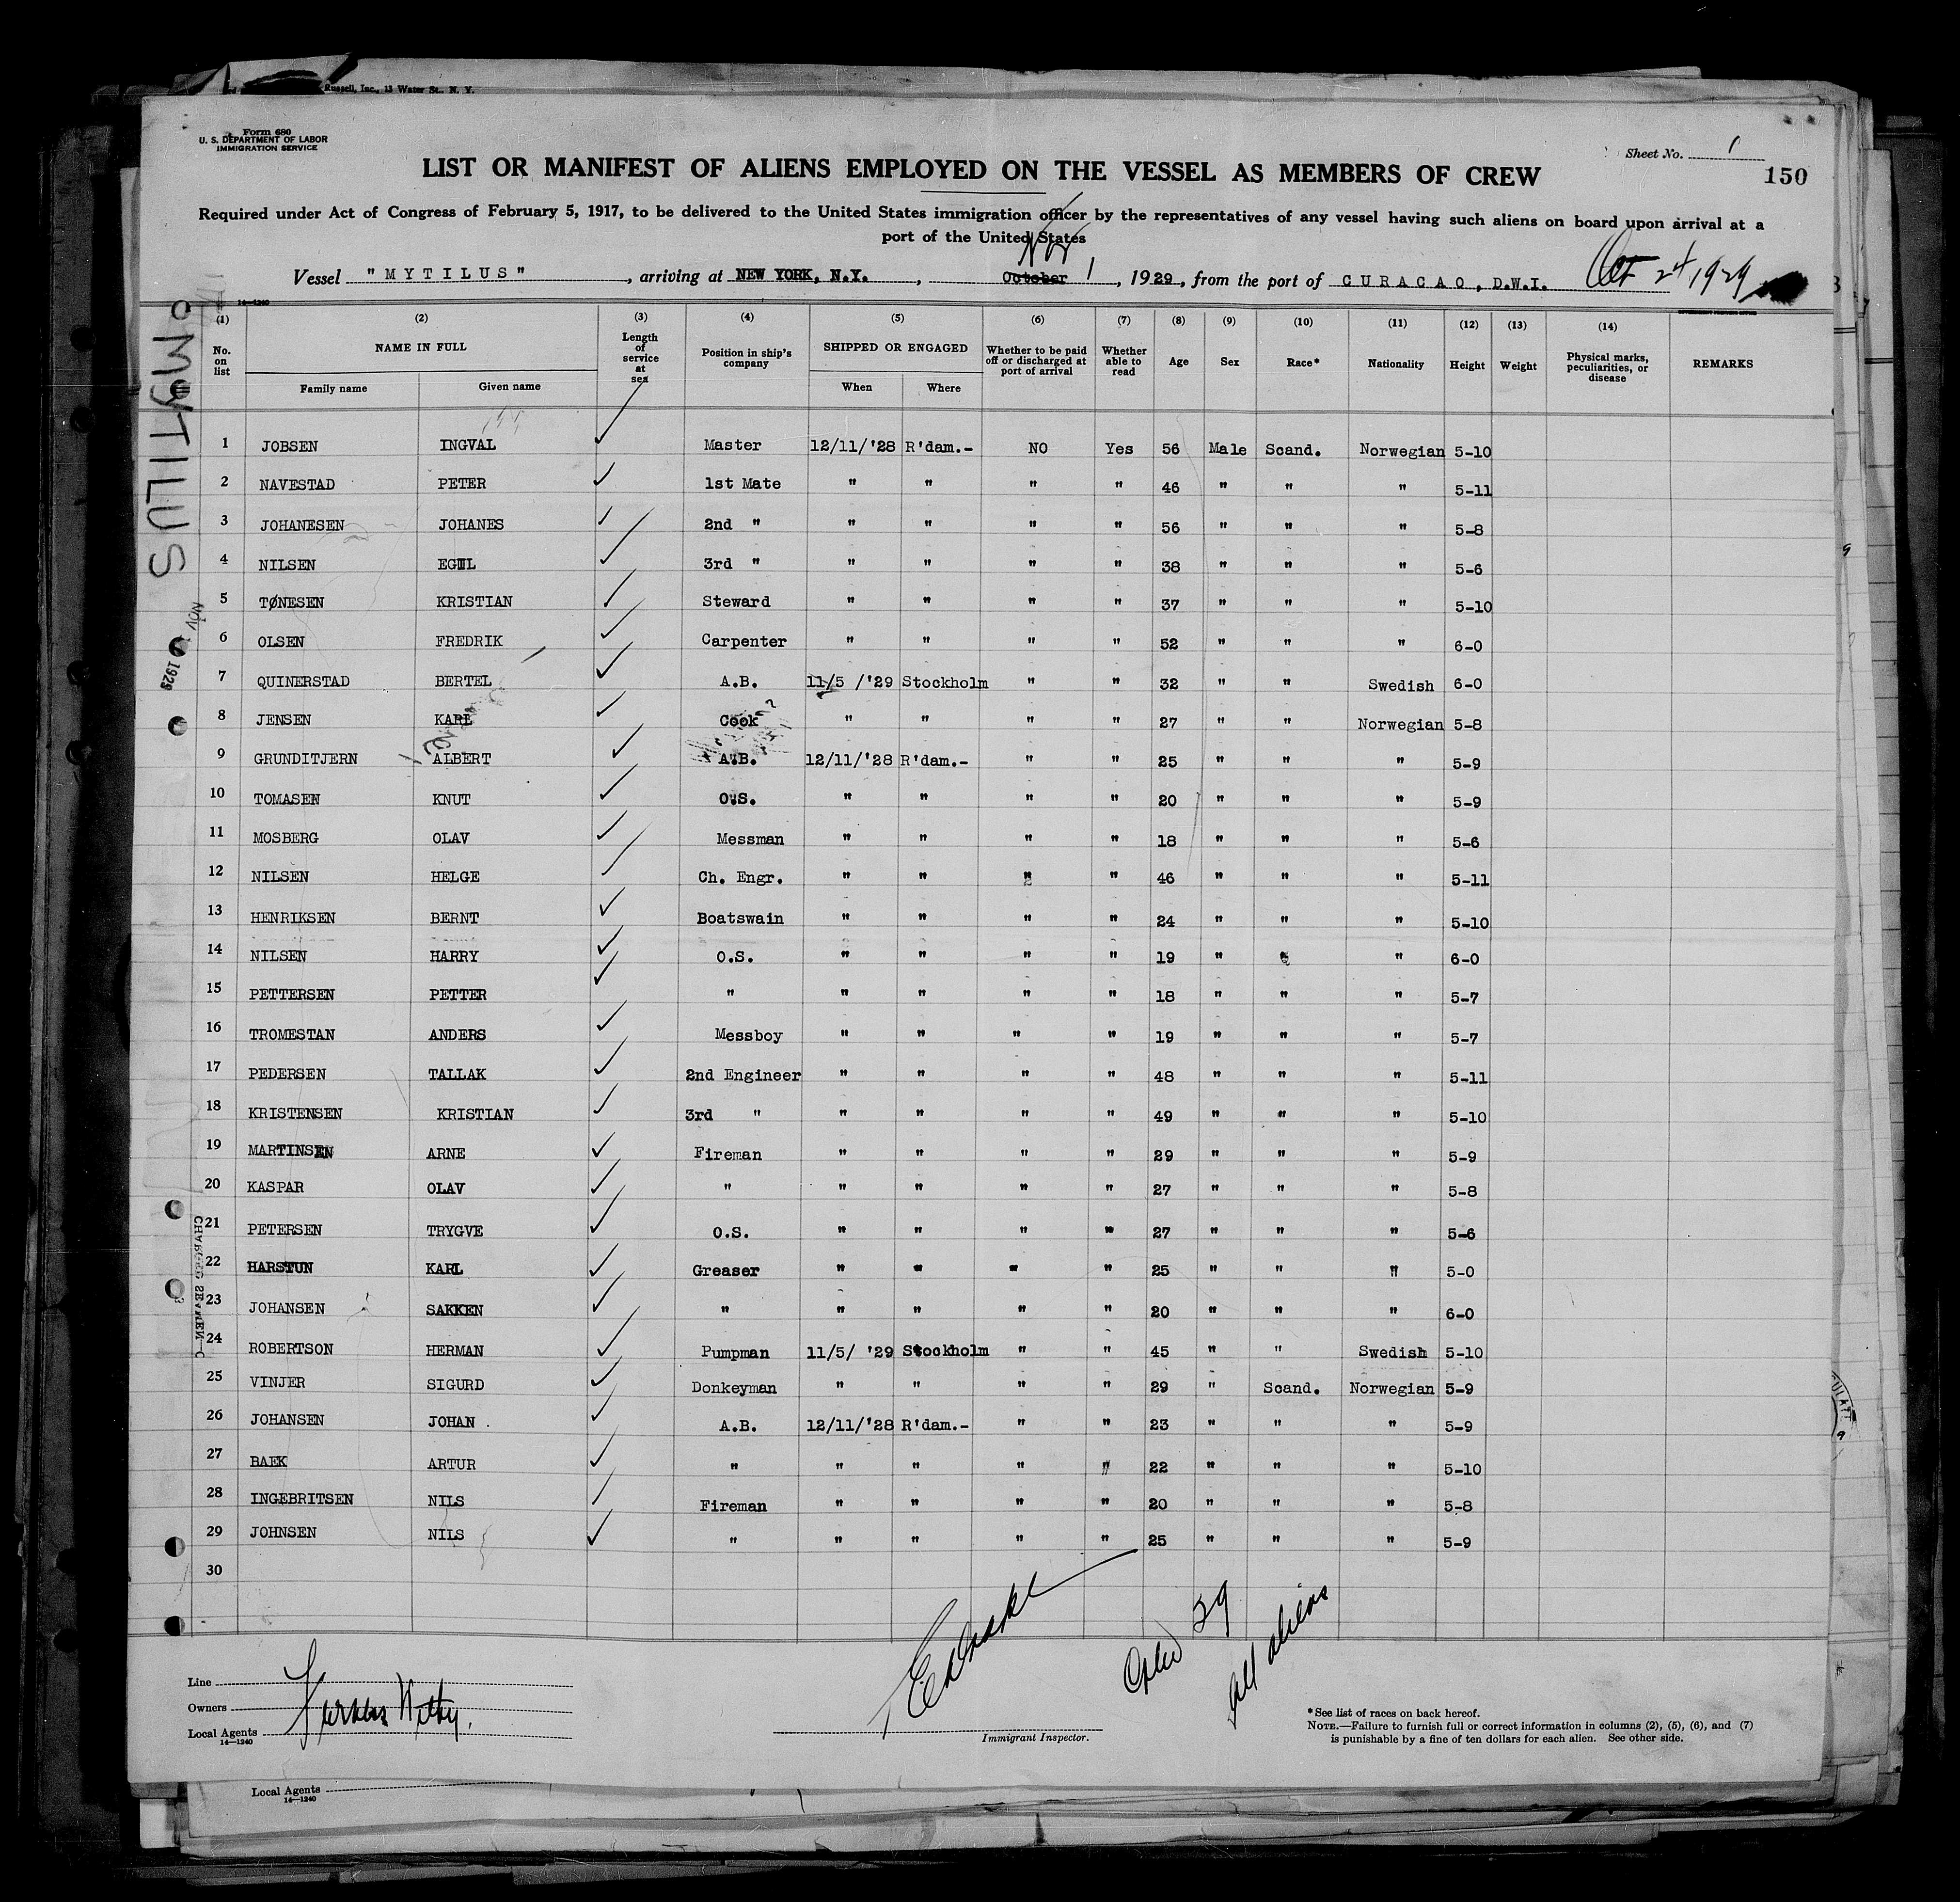 Russell, Inc., 13 Water St., N. Y.
Form 680
U. S. DEPARTMENT OF LABOR
IMMIGRATION SERVICE
Sheet No. 1
150
LIST OR MANIFEST OF ALIENS EMPLOYED ON THE VESSEL AS MEMBERS OF CREW
Required under Act of Congress of February 5, 1917, to be delivered to the United States immigration officer by the representatives of any vessel having such aliens on board upon arrival at a
port of the United States
Nov
Vessel "MYTILUS", arriving at NEW YORK, N.Y., October 1, 1929, from the port of CURACAO, D.W.I. Oct 24, 1929
14—1240
(1) (2) (3) (4) (5) (6) (7) (8) (9) (10) (11) (12) (13) (14)
No. on list NAME IN FULL Length of service at sea Position in ship's company SHIPPED OR ENGAGED Whether to be paid off or discharged at port of arrival Whether able to read Age Sex Race* Nationality Height Weight Physical marks, peculiarities, or disease REMARKS
Family name Given name When Where
1 JOBSEN INGVAL Master 12/11/'28 R'dam.- NO Yes 56 Male Scand. Norwegian 5-10
2 NAVESTAD PETER 1st Mate " " " " 46 " " " 5-11
3 JOHANESEN JOHANES 2nd " " " " " 56 " " " 5-8
4 NILSEN EGIL 3rd " " " " " 38 " " " 5-6
5 TØNESEN KRISTIAN Steward " " " " 37 " " " 5-10
6 OLSEN FREDRIK Carpenter " " " " 52 " " " 6-0
7 QUINERSTAD BERTEL A.B. 11/5 /'29 Stockholm " " 32 " " Swedish 6-0
8 JENSEN KARL Cook " " " " 27 " " Norwegian 5-8
9 GRUNDITJERN ALBERT A.B. 12/11/'28 R'dam.- " " 25 " " " 5-9
10 TOMASEN KNUT O.S. " " " " 20 " " " 5-9
11 MOSBERG OLAV Messman " " " " 18 " " " 5-6
12 NILSEN HELGE Ch. Engr. " " " " 46 " " " 5-11
13 HENRIKSEN BERNT Boatswain " " " " 24 " " " 5-10
14 NILSEN HARRY O.S. " " " " 19 " " " 6-0
15 PETTERSEN PETTER " " " " " 18 " " " 5-7
16 TROMESTAN ANDERS Messboy " " " " 19 " " " 5-7
17 PEDERSEN TALLAK 2nd Engineer " " " " 48 " " " 5-11
18 KRISTENSEN KRISTIAN 3rd " " " " " 49 " " " 5-10
19 MARTINSEN ARNE Fireman " " " " 29 " " " 5-9
20 KASPAR OLAV " " " " " 27 " " " 5-8
21 PETERSEN TRYGVE O.S. " " " " 27 " " " 5-6
22 HARSTUN KARL Greaser " " " " 25 " " " 5-0
23 JOHANSEN SAKKEN " " " " " 20 " " " 6-0
24 ROBERTSON HERMAN Pumpman 11/5/ '29 Stockholm " " 45 " " Swedish 5-10
25 VINJER SIGURD Donkeyman " " " " 29 " Scand. Norwegian 5-9
26 JOHANSEN JOHAN . A.B. 12/11/'28 R'dam.- " " 23 " " " 5-9
27 BAEK ARTUR " " " " " 22 " " " 5-10
28 INGEBRITSEN NILS Fireman " " " " 20 " " " 5-8
29 JOHNSEN NILS " " " " " 25 " " " 5-9
30
MYTILUS
NOV 1929
29
all aliens
Line
Owners
Local Agents
14—1240
Immigrant Inspector.
*See list of races on back hereof.
NOTE.—Failure to furnish full or correct information in columns (2), (5), (6), and (7)
is punishable by a fine of ten dollars for each alien. See other side.
Local Agents
14—1240